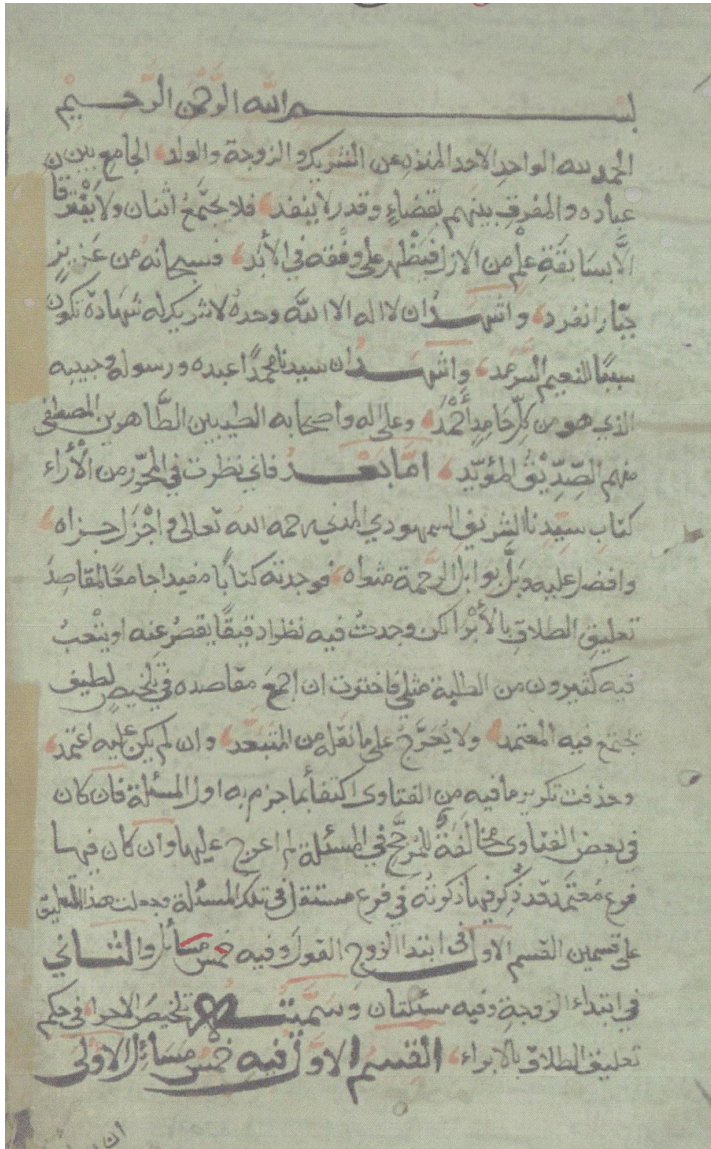 بسم الله الرحمن الرحيم
الحمد لله الواحد الاحد المنزه عن الشريك والزوجة والولد الجامع بين
عباده والمفرق بينهم بقضاءٍ وقدر لا ينفد فلا يجتمعُ اثنان ولا يفترقا
الّا بسابقةِ علمٍ من الازل فيظهر على وفقه في الأبد فسبحانه من عزيزٍ
جبّار انفرد واشهد ان لا اله الا الله وحده لا شريك له شهادة تكون
سببًا للنعيم السرمد واشهد ان سيدنا محمدًا عبده ورسوله وحبيبه
الذي هو من كلّ حامدٍ أحمد وعلى اله واصحابه الطيبين الطّاهرين المصطفى
منهم الصِّدِّيقُ المؤيّد امّا بعد فاني نظرت في المحرّر من الأراء
كتابِ سيّدِنا الشريفِ السمهودي المدني رحمه الله تعالى واجْزل جزاه
وافضل عليه وبلَّ بوابل الرّحمة مثواه فوجدته كتابًا مفيدا جامعًا لمقاصدِ
تعليقِ الطلاقِ بالأبْرا لكن وجدتُ فيه نظرا دقيقًا يقصُر عنه او يتْعبُ
فيه كثيرون من الطلبة مثلي فاخترت ان اجمعَ مقاصده في تلخيصٍ لطيف
يجتمع فيه المعتمد ولا يُعَرَّجُ على ما نقله من المتبعّد وان لم يكن عليه اعتمد
وحذفت تكرير ما فيه من الفتاوى اكتفأ بما جزم به اول المسئلة فان كان
في بعض الفتاوى مخالفةٌ للمرجّح في المسئلة لم اعرج عليها وان كان فيها
فرع مُعتمد قد ذُكر فيها ذكرتُه في فرع مستقل في تلك المسئلة وجعلت هذا التعليق
على قسمين القسم الاول في ابتدا الزوج القول وفيه خمس مسائل والثاني
في ابتداء الزوجةِ وفيه مسئلتان وسمّيتُه تلخيصُ الاحرا في حكم
تعليق الطلاق بالابراء القسم الاوّل فيه خمسُ مسَائل الاولى
ان